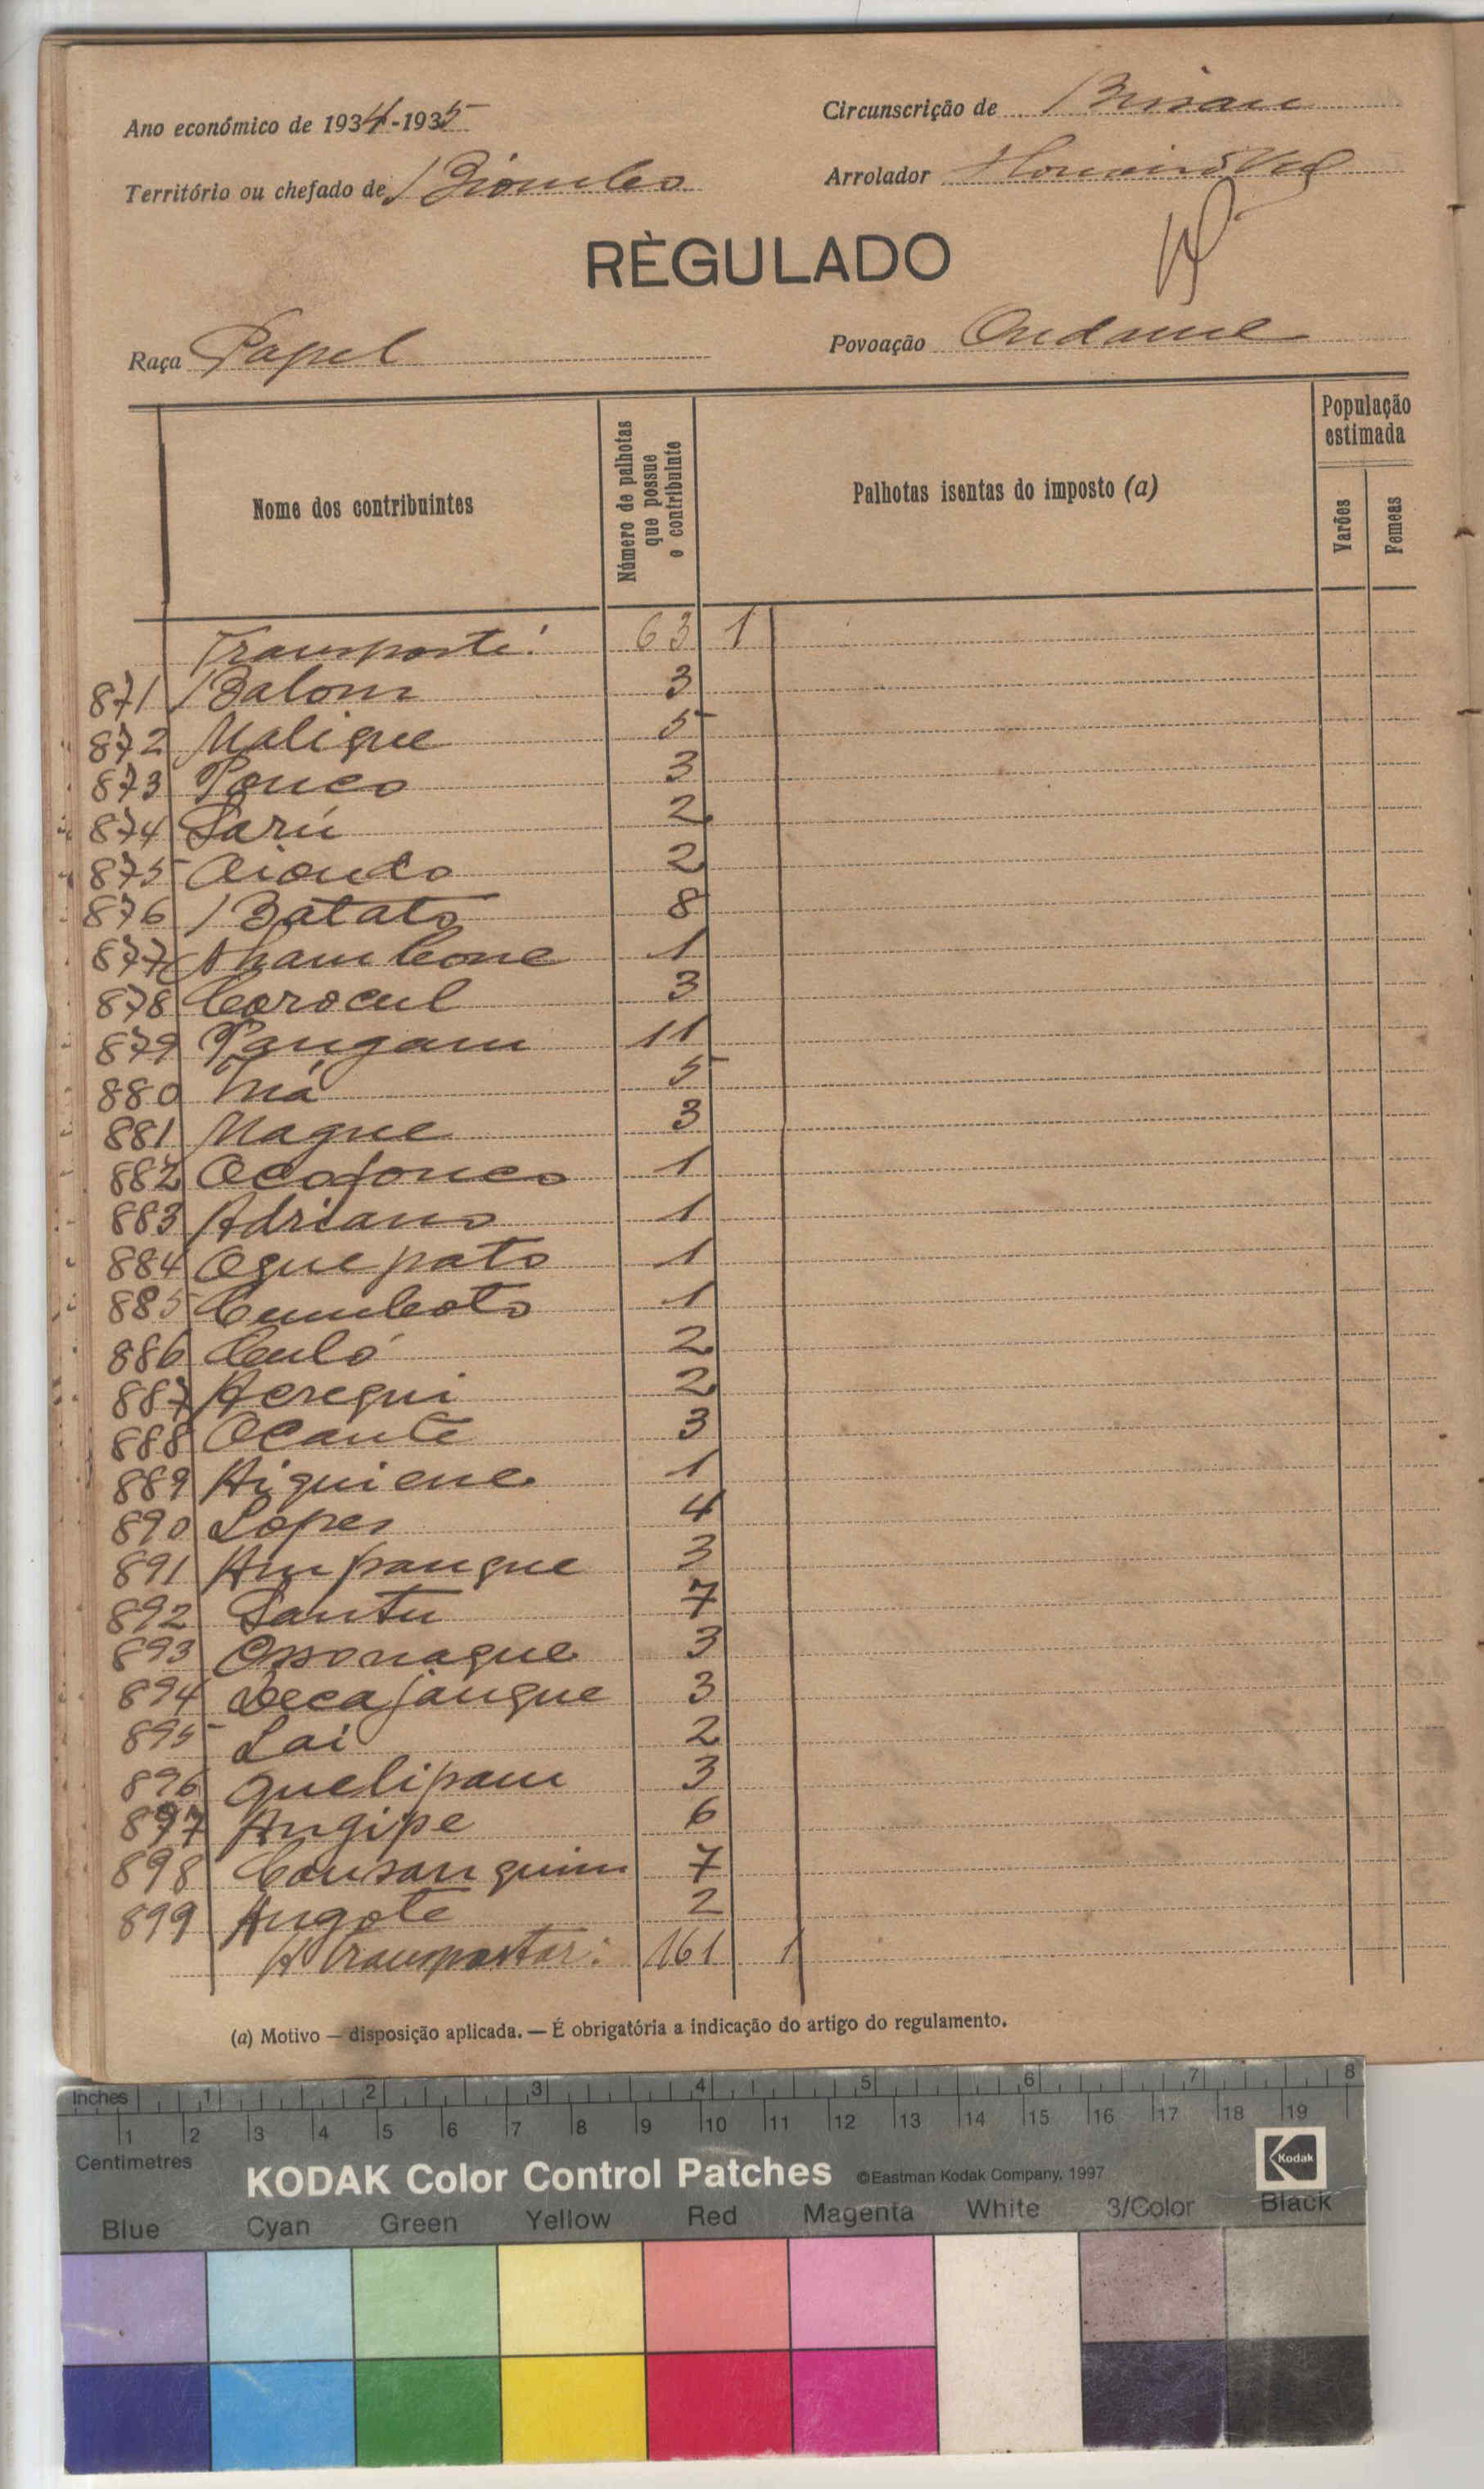 Ano económico de 1934-1935
Circunscrição de Bissau
Território ou chefado de Biombo
Arrolador
RÈGULADO
Raça Papel
Povoação Ondame
Nome dos contribuintes
Número de palhotas que possue o contribuinte
Palhotas isentas do imposto (a)
População estimada
Varões
Femeas
Transporte: 63 1
871 Balom 3
872 Malique 5
873 Pouco 3
874 Sarú 2
875 2
876 Batato 8
877 1
878 Corocul 3
879 Pangam 11
880 Iná 5
881 Maque 3
882 1
883 Adriano 1
884 Oquepato 1
885 Cumboto 1
886 Culó 2
887 2
888 Ocante 3
889 Aiquiene 1
890 Lopes 4
891 Ampanque 3
892 Santu 7
893 Ossonaque 3
894 Decajanque 3
895 Lai 2
896 Quelipam 3
897 Angipe 6
898 Cousanquim 7
899 Angote 2
A transportar: 161 1
(a) Motivo — disposição aplicada. — É obrigatória a indicação do artigo do regulamento.
Inches 1 2 3 4 5 6 7 8
1 2 3 4 5 6 7 8 9 10 11 12 13 14 15 16 17 18 19
Centimetres
KODAK Color Control Patches ©Eastman Kodak Company, 1997 Kodak
Blue Cyan Green Yellow Red Magenta White 3/Color Black